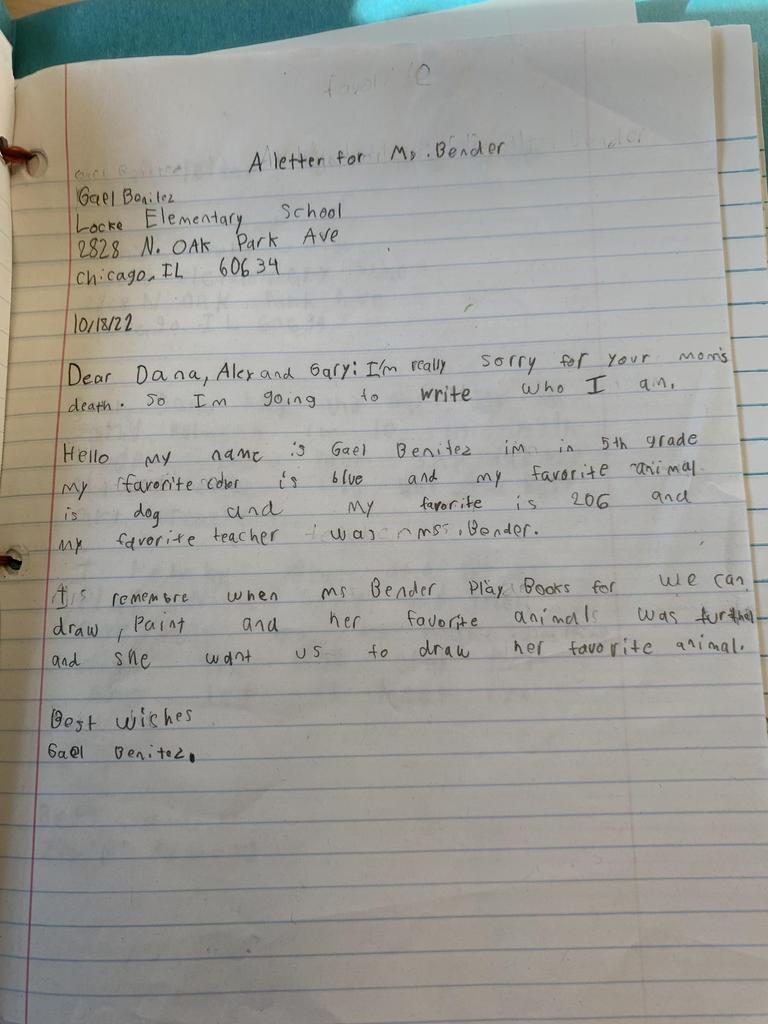 favori
A letter for Ms. Bender
Gael Benitez
Locke Elementary School
2828 N. OAK Park Ave
Chicago, IL 60634
10/18/22
Dear Dana, Alex and Gary: I'm really sorry for your mom's
death. So I'm going to write who I am.
Hello my name is Gael Benitez im in 5th grade
my favorite color is blue and my favorite animal
is dog and my favorite is 206 and
my favorite teacher was ms. Bender.
remembre when ms Bender Play Books for we can
draw, Paint and her favorite animals was
and she want us to draw her favorite animal.
Best wishes
Gael Benitez.